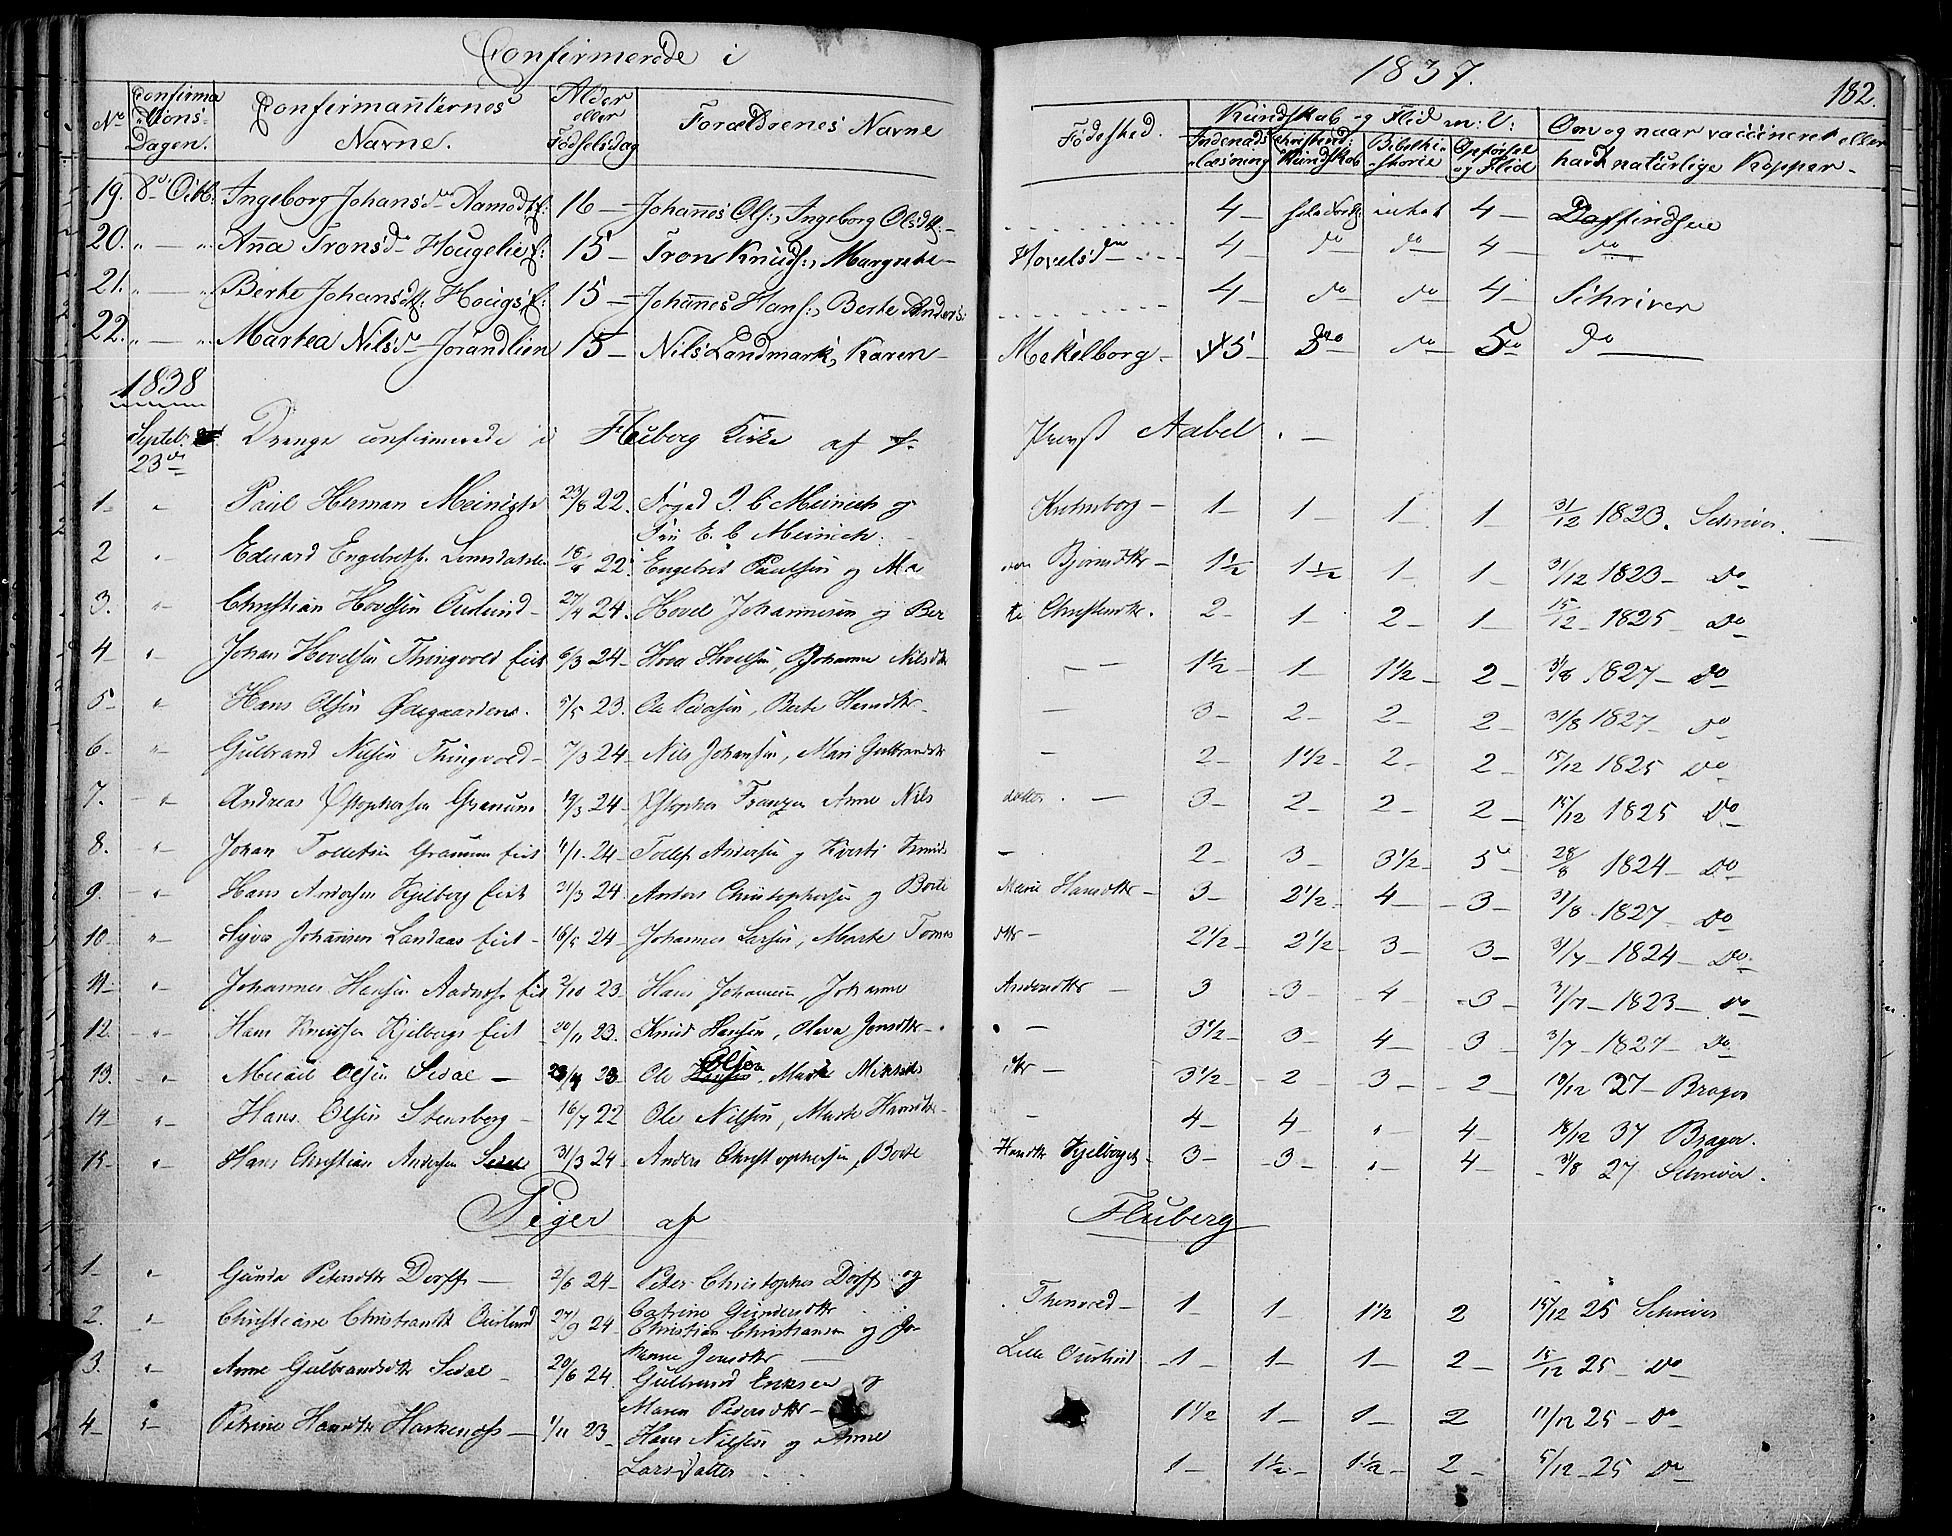 Confirmerede i 1837. 182.
No Confirmations-Dagen. Confirmanternes Navne. Alder eller Fødselsdag Forældrenes Navne Fødested. Kundskab og Flid m: V: Indenadslæsning Christend: Kundskab Bibelhistorie Opførsel og Flid Om og naar vaccineret eller havt naturlige Kopper
19. 8de Ingeborg Johansdr Aamodt 16 Johannes Ols:, Ingeborg Olsdtr 4 4
20. " Anna Tronsd Hougelie 15 Tron Knuds:, Margrete Hovelsd 4 do do 4 do
21. " Berte Johansdtr: Hougs 15 Johannes Hans:, Berte Anders: 4 do do 4 Schriver
22. " Martea Nilsd Jørandlien 15 Nils Landmark, Karen Mekelborg 5 do do 5 do
1838
Septebr 23de Drenge confirmerede i Fluberg Kirke af Provst Aabel.
1 Paul Herman Meinich 23/8 22. Foged I. C Meinich og Krohnborg 1 1 1 1 31/12 1823. Schriver
Fru E. C Meinich
2 Edvard Engebrets. 22. Engebret Paulsen og Ma Bjørnsdtr 1½ 1½ 1 1 31/12 1823 Do
3. Christian Hovelsen Ourlund 27/4 24. Hovel Johannesen og Ber te Christensdtr. 2 1 2 1 15/12 1825 Do
4 Johan Hovelsen Thingvold Eiet 6/3 24 Hovel Hovelsen, Johanne Nilsdtr 1½ 1 1½ 2 31/8 1827 Do
5 Hans Olsen Ødegaardens. 5/5 23. Ole Pedersen, Berte Hansdtr 3 2 2 2 31/8 1827 Do
6 Gulbrand Nilsen Thingvold 7/3 24 Nils Johansen, Mari Gulbrandsdtr 2 1½ 2 2 15/12 1825 Do
7. Andreas Xstophersen Granum 19/3 24 Xstopher Franzen Anne Nils datter. 3 2 2 2 15/12 1825 Do
8. Johan Tollefsen Granum Eiet 4/1 24 Tollef Andersen og Kersti 2 3 3½ 5 28/8 1824 Do
9. Hans Andersen Kjelberg Eiet 21/3 24 Anders Christophersen og Berte Marie Hansdtr 3 2½ 4 3 31/8 1827 Do
10 Syver Johannsen Landaas Eiet 16/5 24 Johannes Larsen, Marte Tomes dtr 2½ 2½ 3 3 3/7 1824 Do
11 Johannes Hansen Eiet 2/10 23 Hans Johannsen, Johanne Andersdtr 3 3 4 3 3/7 1823 Do
12. Hans Knudsen Kjelbergs Eiet 20/11 23. Knud Hansen, Oleva Jensdtr 3½ 3 4 3 3/7 1827 Do
13. Michael Olsen Sedal 23 Ole Olsen, Marte dtr 3½ 2 3 2 19/12 27 Brager
14 Hans Olsen Stensberg 16/7 22 Ole Nilsen, Marte Hansdtr 4 4 " 4 18/12 37 Brager.
15 Hans Christian Andersen Sedal 31/3 24 Anders Christophersen, Berte Hansdtr Kjelberget 3 3 " 4 31/8 27 Schriver.
Piger af Fluberg
1 Gunda Petersdtr Dorff 2/6 24 Peter Christopher Dorff og Thenvced 1 1 1½ 2 15/12 25 Schriver
Catrine Gundersdtr
2. Christiane Christiansdtr Ourlund 27/9 24 Christian Christiansen og Jo- Lille Ourlund 1 1 1 2 15/12 25 Do
hanne Jonsdtr
3. Anne Gulbrandsdtr Sedal 20/6 24. Gulbrand Eriksen og 1½ 1 1 2 11/12 25 Do
Maren Pedersdtr
4 Petrine Hansdtr 1/11 23 Hans Nilsen og Anne 1 1½ 1½ 2 5/12 25 Do
Larsdatter